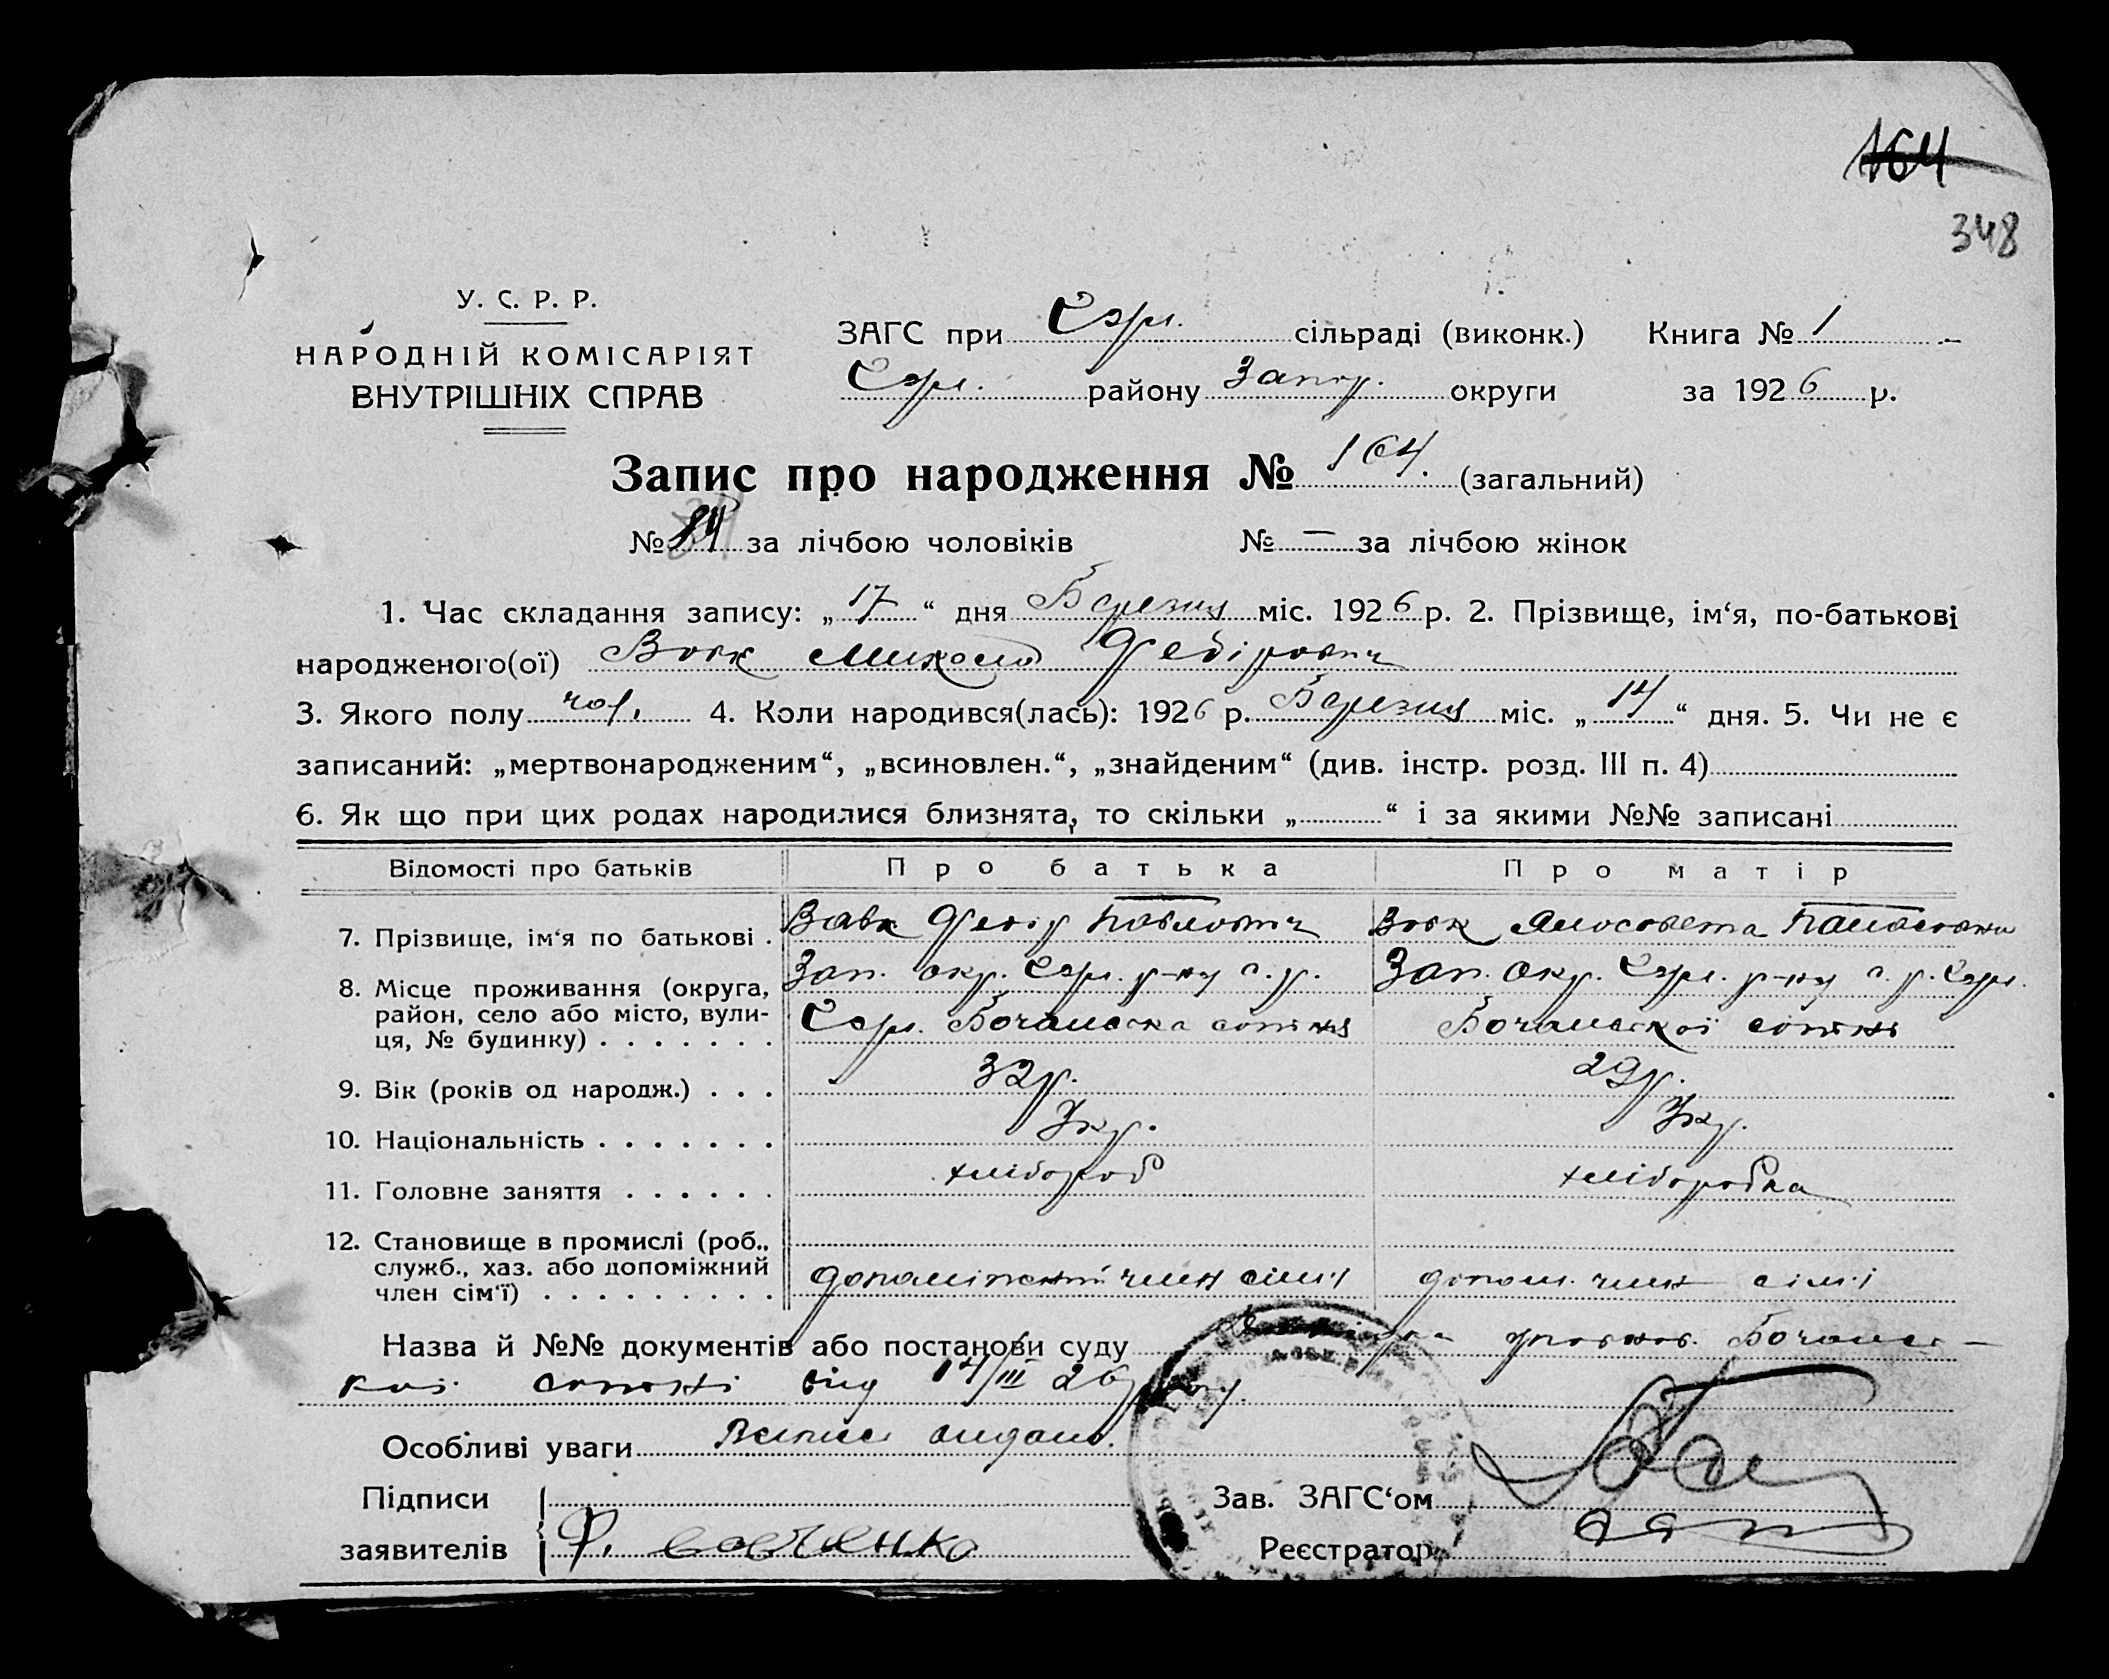 164
348
У. С. Р. Р.
НАРОДНІЙ КОМІСАРІЯТ
ВНУТРІШНІХ СПРАВ
ЗАГС при сільраді (виконк.) Книга № 1
району Запор. округи за 1926 р.
Запис про народження № 164. (загальний)
№ 84 за лічбою чоловіків № — за лічбою жінок
1. Час складання запису: „17“ дня Березня міс. 1926 р. 2. Прізвище, ім‘я, по-батькові
народженого(ої) Вовк Микола Федірович
3. Якого полу чол. 4. Коли народився(лась): 1926 р. Березня міс. „14“ дня. 5. Чи не є
записаний: „мертвонародженим“, „всиновлен.“, „знайденим“ (див. інстр. розд. III п. 4)
6. Як що при цих родах народилися близнята, то скільки „ “ і за якими №№ записані
Відомості про батьків Про батька Про матір
7. Прізвище, ім‘я по батькові . Вовк Федір Павлович Вовк
8. Місце проживання (округа, Зап. окр. р-ну с. р. Зап. Окр. р-ну с. р.
район, село або місто, вули-
ця, № будинку) . . . . . . . сотня сотні
9. Вік (років од народж.) . . . 32 р. 29 р.
10. Національність . . . . . . . Укр. Укр.
11. Головне заняття . . . . . . хлібороб хліборобка
12. Становище в промислі (роб.,
служб., хаз. або допоміжний
член сім‘ї) . . . . . . . . . допоміжний член сім'ї допом. член сім'ї
Назва й №№ документів або постанови суду
кої сотні від 14/III 26 року.
Особливі уваги
Підписи Зав. ЗАГС‘ом
заявителів Ф. Реєстратор